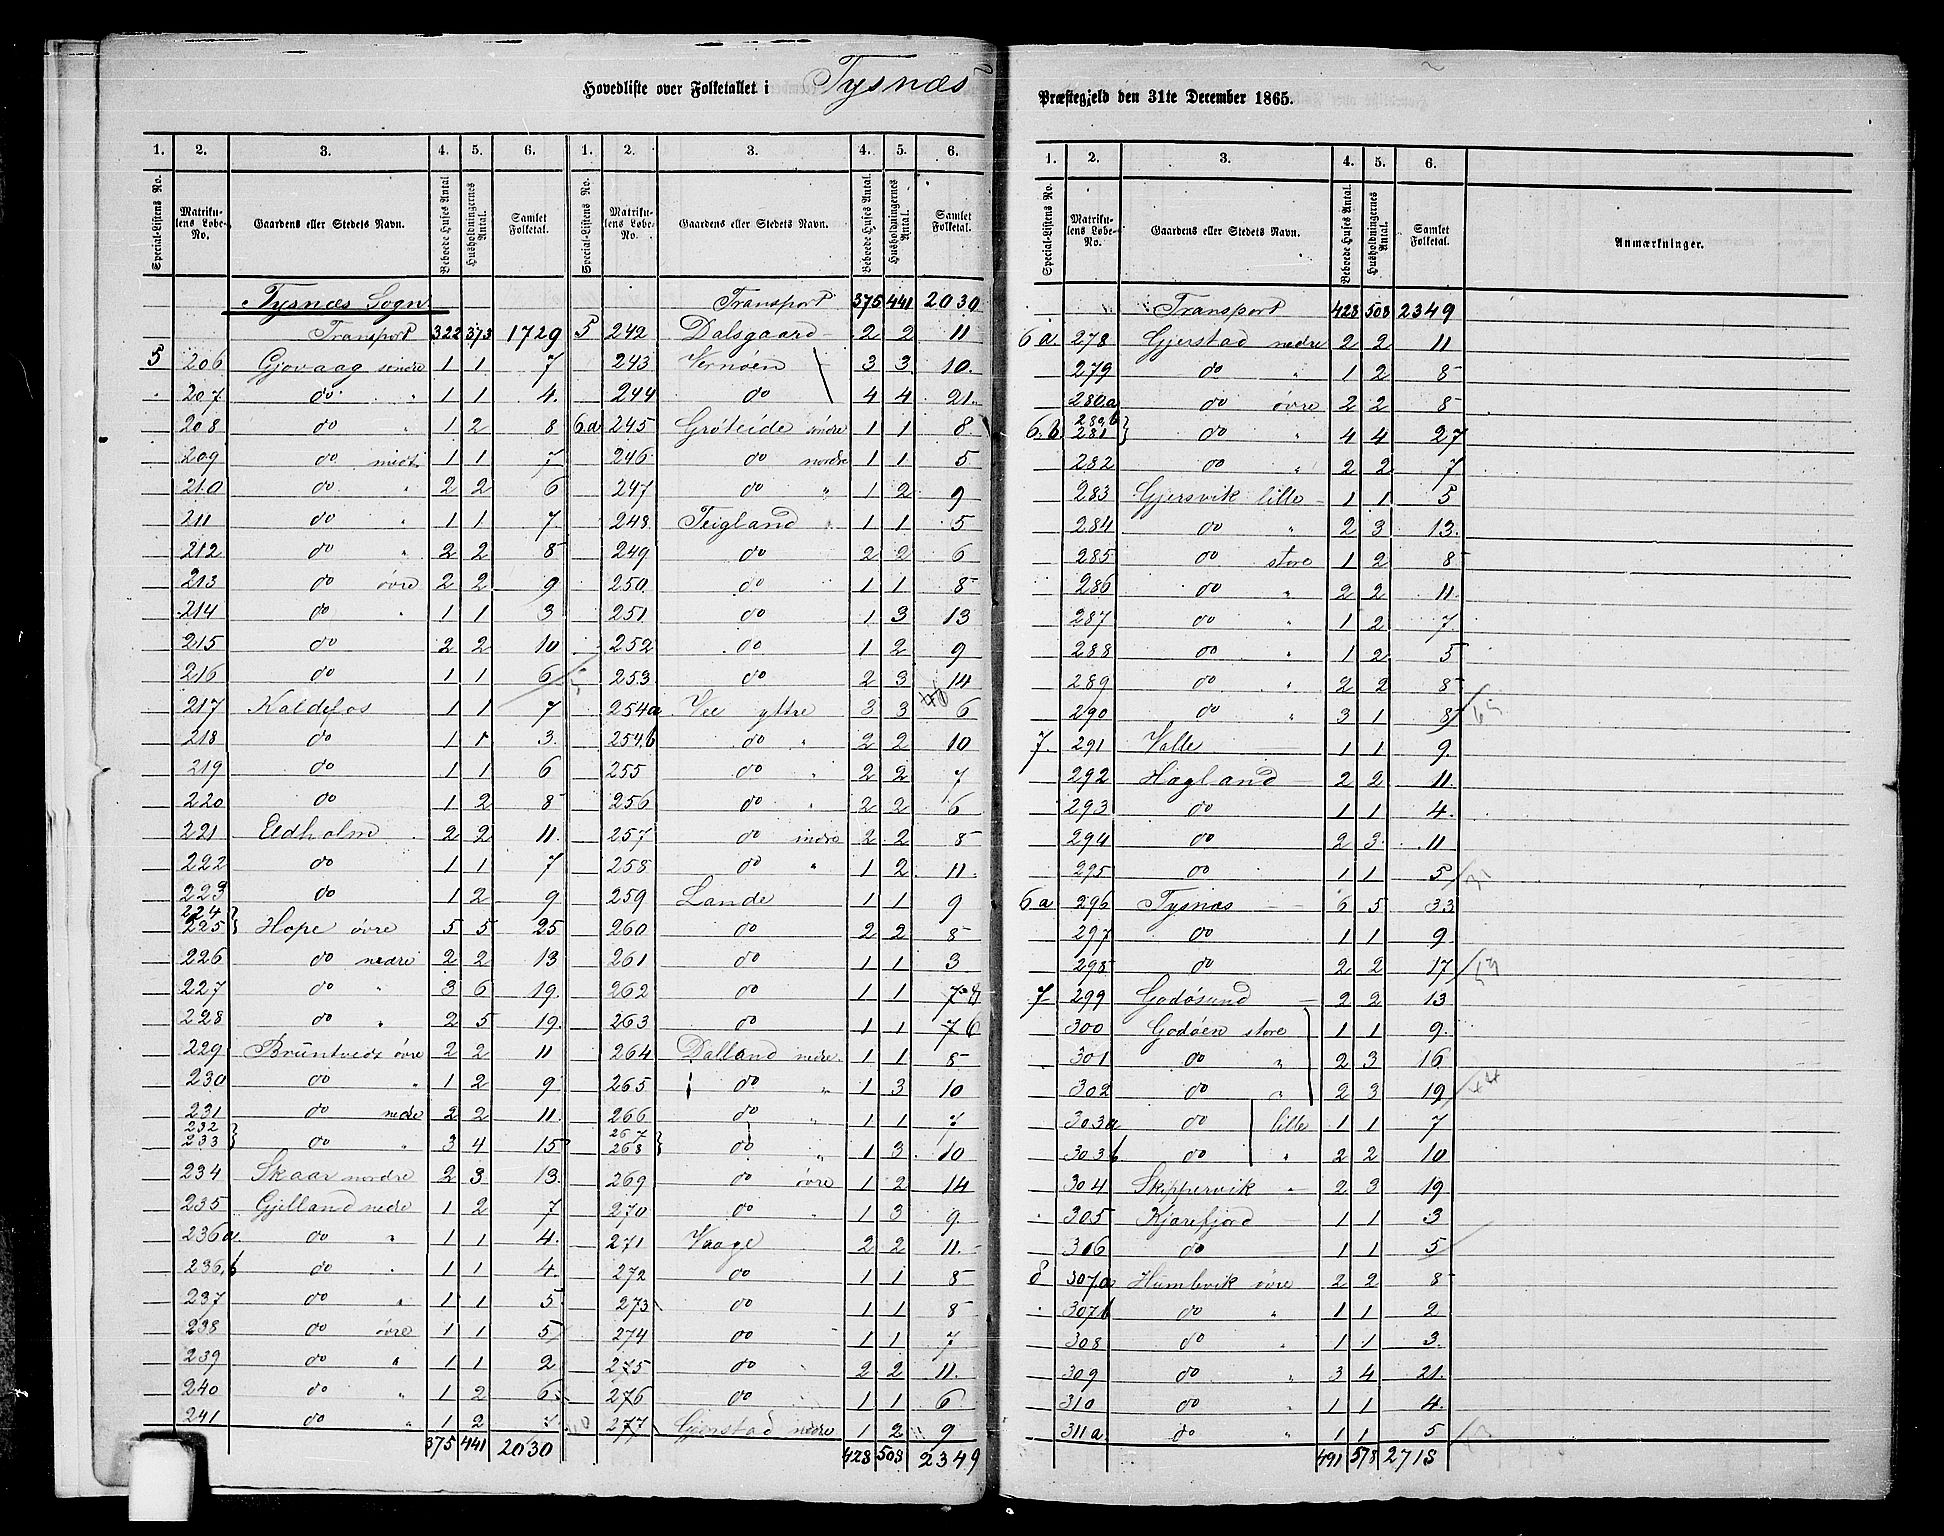 Hovedliste over Folketallet i Tysnæs
1. 2. 3. 4. 5. 6. 1. 2. 3. 4. 5. 6.
Special-Listens No. Matrikulens Løbe-No. Gaardens eller Stedets Navn. Beboede Huses Antal Husholdningernes Antal. Samlet Folketal. Special-Listens No. Matrikulens Løbe-No. Gaardens eller Stedets Navn. Beboede Huses Antal. Husholdningernes Antal. Samlet Folketal.
Tysnæs Sogn
Transport 322 373 1729
5 206 Gjovaag søndre 1 1 7
207 do " 1 1 4.
208 do " 1 2 8
209 do midt. 1 1 7
210 do " 2 2 6
211 do " 1 1 7
212 do " 2 2 8
213 do øvre 2 2 9
214 do " 1 1 3
215 do 2 2 10
216 do 1 1 6
217 Kaldefos 1 1 7
218 do 1 1 3.
219 do 1 1 6
220 do 1 2 8
221 Eidholm 2 2 11.
222 do 1 1 7
223 do 1 2 9
224
225 } Hope øvre 5 5 25
226 do nedre 2 2 13
227 do " 3 6 19.
228 do " 2 5 19.
229 Bruntvedt øvre 2 2 11
230 do " 1 2 9
231 do nedre 2 2 11.
232
233 } do " 3 4 15
234 Skaar nordre 2 3 13.
235 Gjelland nedre 1 2 7
236a do " 1 1 4.
236.b do " 1 1 4.
237 do " 1 1 5
238 do øvre 1 1 5
239 do " 1 1 2
240 do " 1 2 6
241 do " 1 2 7
375 441 2030
Transport 375 441 2030
5 242 Dalsgaard 2 2 11
243 Vernøen 3 3 10.
244 do 4 4 21.
6.a 245 Grøteide indre 1 1 8
246 do nordre 1 1 5
247 do " 1 2 9
248. Teigland " 1 1 5
249 do 2 2 6
250. do 1 1 8
251 do 1 3 13
252 do 1 2 9
253 do 2 3 14
254a Vee yttre 3 3 6
254.b do " 2 2 10
255 do " 2 2 7
256 do " 2 2 6
257 do indre 2 2 8
258 do " 1 2 11.
259 Lande 1 1 9
260 do 2 2 8
261 do 1 1 3
262 do 1 1 7
263 do 1 1 7 6
264 Dalland nedre 1 1 8
265 do " 1 3 10
266 do " 1 1 7
267
268 } do " 1 3 10
269 do øvre 1 2 14
270 do " 1 3 9.
271 Vaage 2 2 11.
272 do 1 1 8
273 do 1 1 8
274 do 1 1 7
275 do 2 2 11.
276 do 1 1 6
277 Gjerstad nedre 1 2 9
428 508 2349
Præstegjeld den 31te December 1865.
1. 2. 3. 4. 5. 6.
Special-Listens No. Matrikulens Løbe-No. Gaardens eller Stedets Navn. Beboede Huses Antal. Husholdningernes Antal. Samlet Folketal. Anmærkninger.
Transport 428 508 2349
6a 278 Gjerstad nedre 2 2 11
279 do " 1 2 8
280.a do øvre 2 2 8
6.b 280.b
281 } do " 4 4 27
282 do " 2 2 7
283 Gjersvik lille 1 1 5
284 do " 2 3 13.
285 do store 1 2 8
286 do " 2 2 11.
287 do " 1 2 7
288 do " 1 2 5
289 do " 2 2 8
290 do " 3 1 8
7. 291 Valle 1 1 9.
292 Hagland 2 2 11.
293 do 1 1 4.
294 do 2 3 11
295 do 1 1 5 /31
6a 296 Tysnæs 6 5 33
297 do 1 1 9.
298 do 2 2 17 /59
7 299 Godøsund 2 2 13
300 Godøen store 1 1 9.
301 do " 2 3 16
302 do " 2 3 19 /44
303a do lille 1 1 7
303b do " 2 2 10
304 Skippervik " 2 3 19
305 Kjærefjord 1 1 3
306 do 1 1 5
8 307.a Humlevik øvre 2 2 8
307b do " 1 1 2
308 do " 1 1 3.
309 do " 3 4 21.
310 do " 1 1 4.
311a. do " 1 1 5
491 578 2718